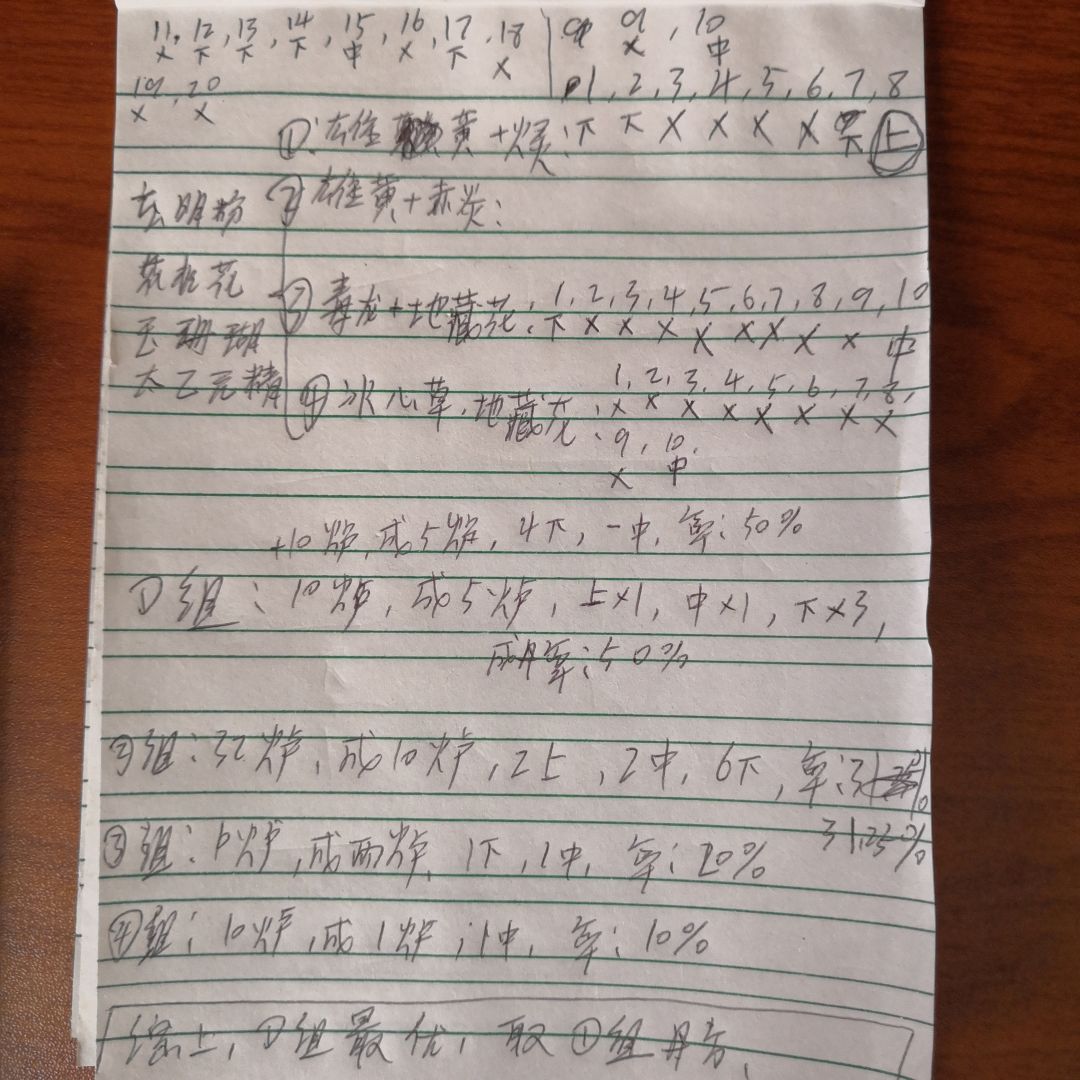 11, 12, 13, 14, 15, 16, 17, 18
× 下 下 下 中 × 下 ×
19, 20
× ×
9, 10
× 中
1, 2, 3, 4, 5, 6, 7, 8
①: 雄黄+炎: 下 下 × × × × 下 上
② 雄黄+赤炎:
玄明粉
玉珊瑚
太乙元精
③ 毒龙+地藏花: 1, 2, 3, 4, 5, 6, 7, 8, 9, 10
下 × × × × × × × × 中
④ 冰心草, 地藏花: 1, 2, 3, 4, 5, 6, 7, 8,
× × × × × × × ×
9, 10,
× 中
+10炉, 成5炉, 4下, 一中, 率: 50%
①组: 10炉, 成5炉, 上×1, 中×1, 下×3,
成丹率: 50%
②组: 32炉, 成10炉, 2上, 2中, 6下, 率:
31.25%
③组: 10炉, 成两炉, 1下, 1中, 率: 20%
④组: 10炉, 成1炉; 1中, 率: 10%
综上, ①组最优, 取①组丹方、